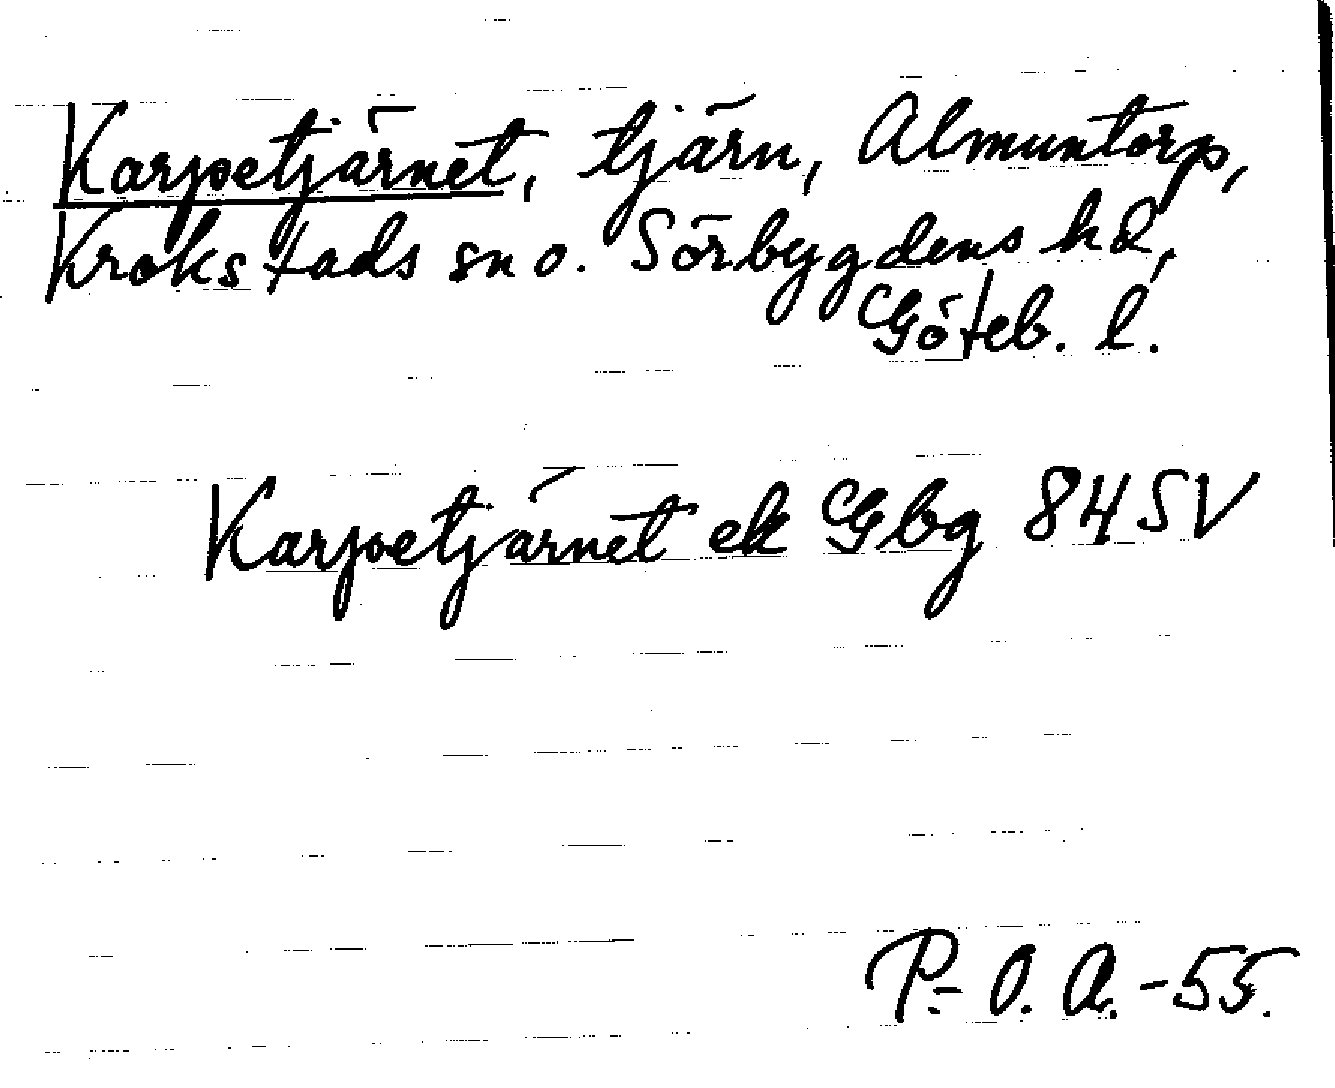 Karpetjärnet, tjärn, Almuntorp,
Krokstads sn o. Sörbygdens hd,
Göteb. l.
Karpetjärnet ek Gbg 84 SV
P.-O. A. -55.